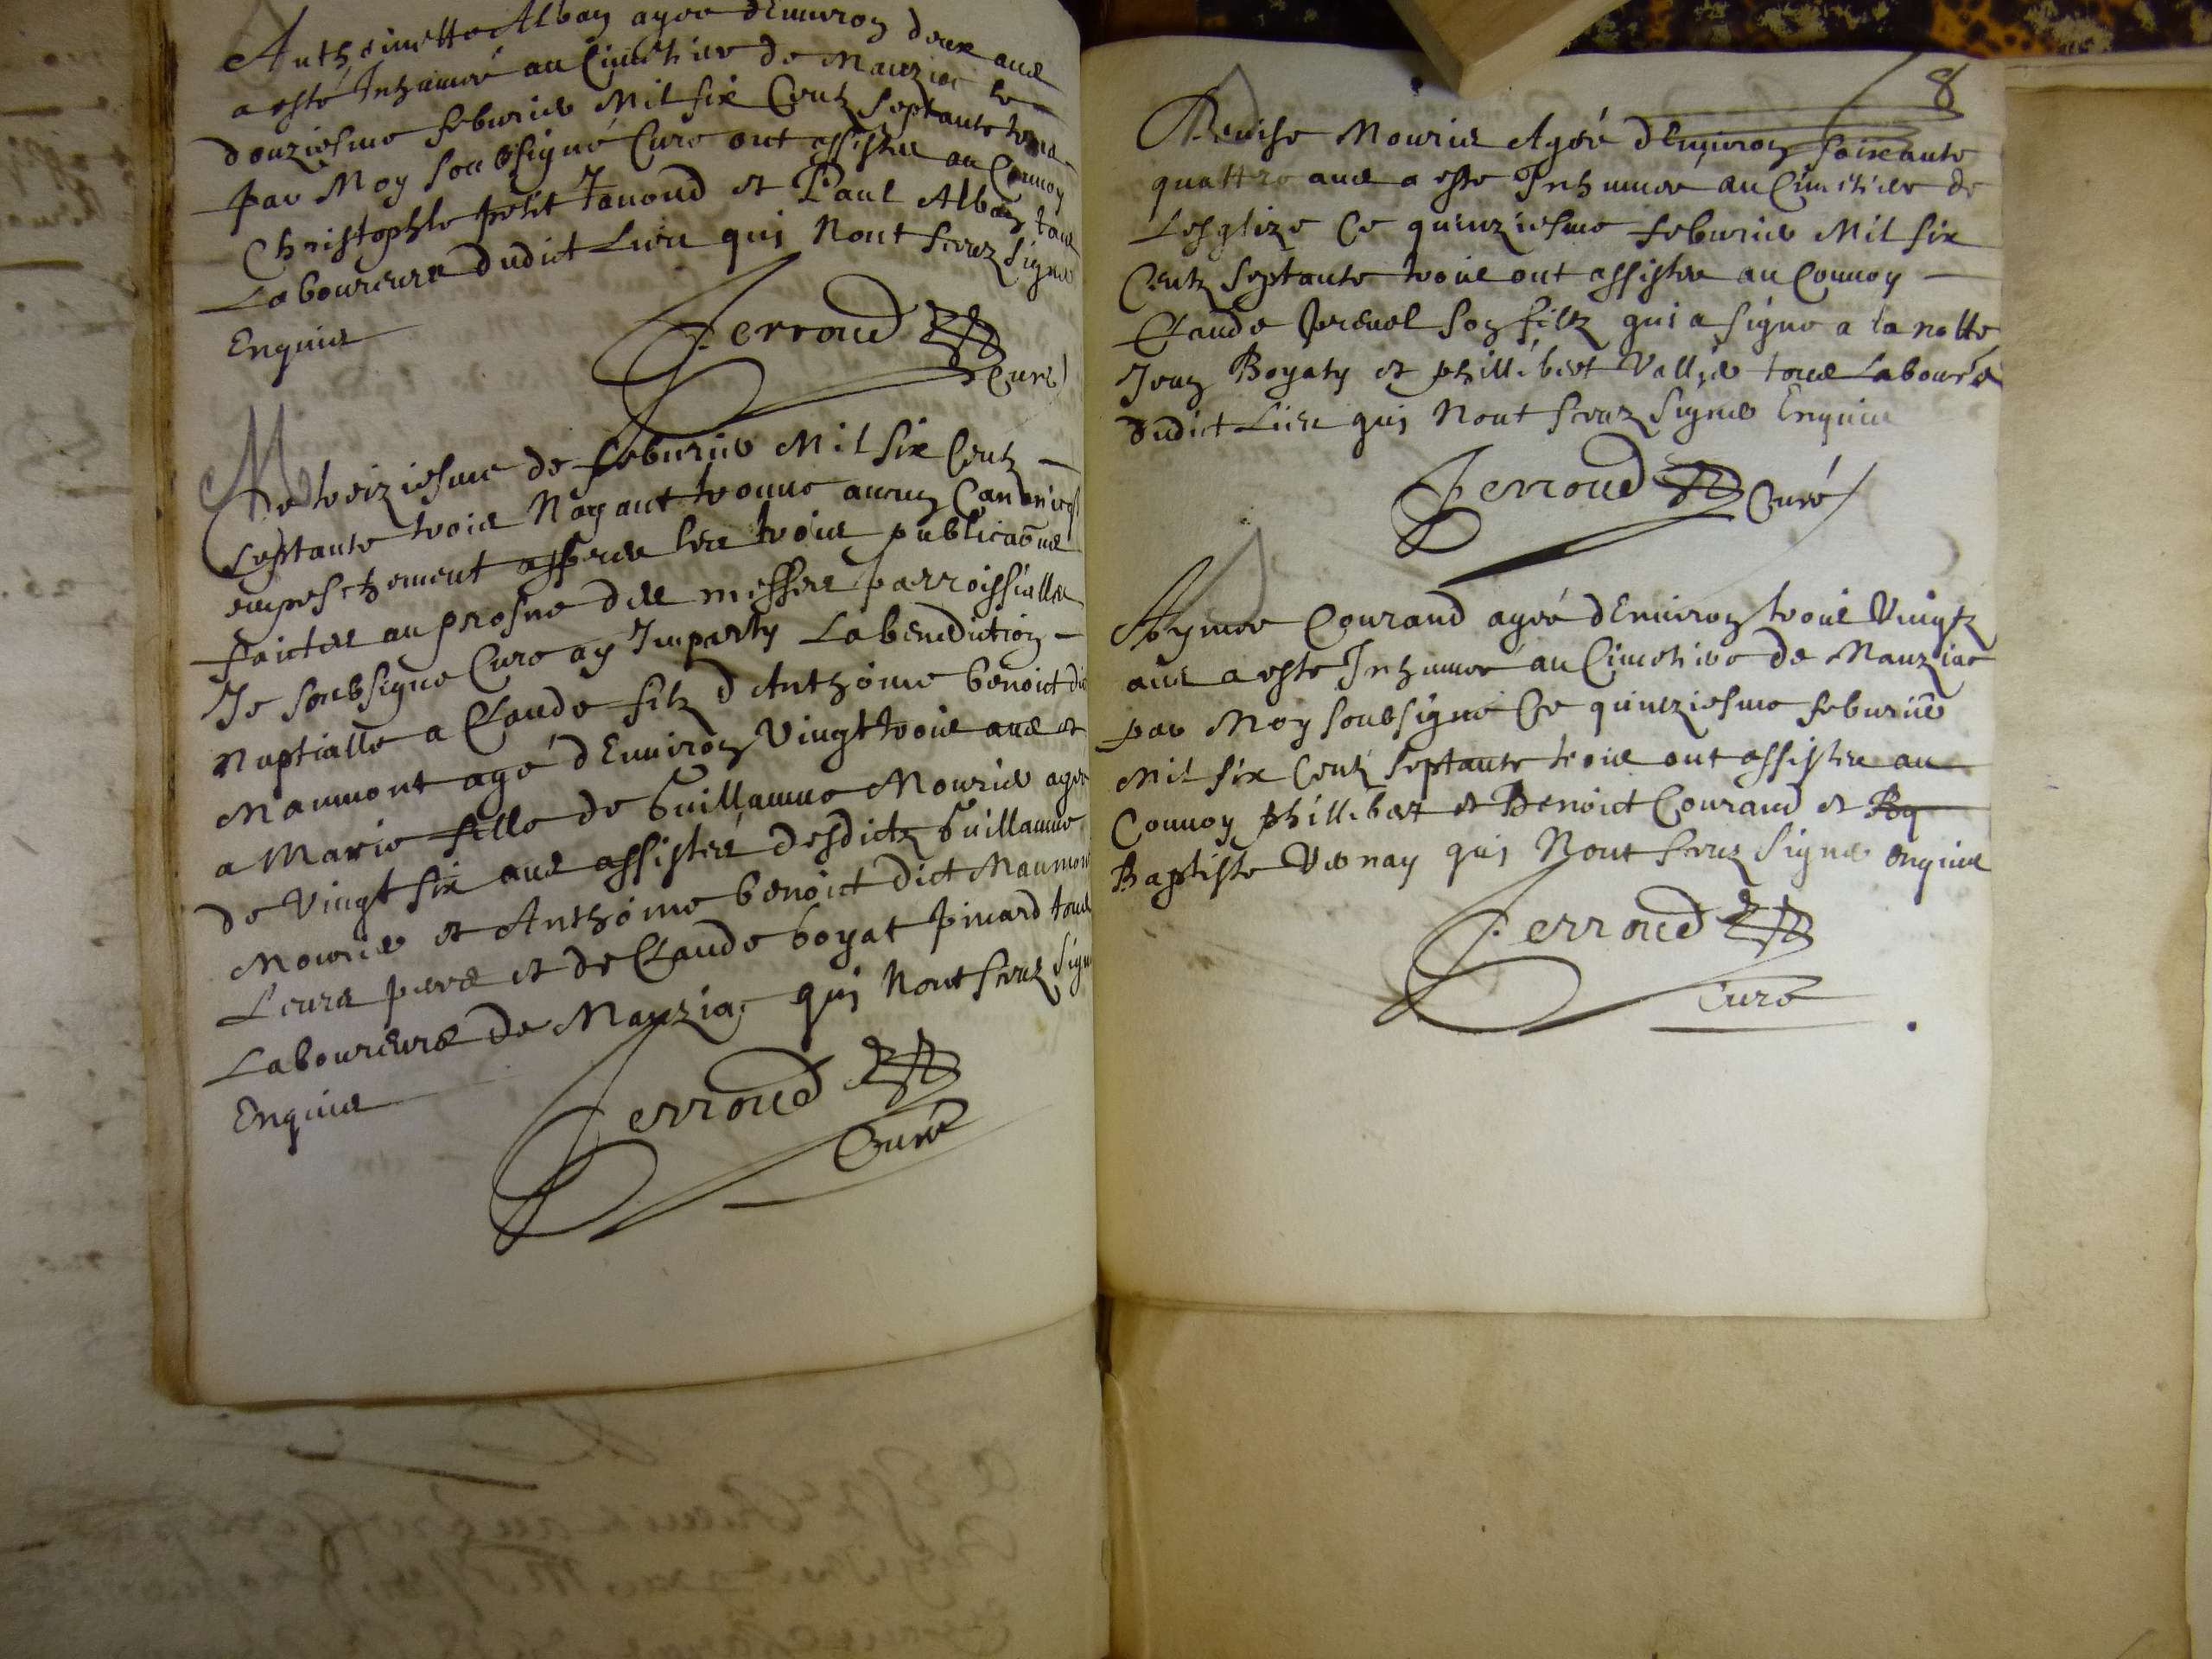 Anthoinette Alban agee d'Environ deux ans
a esté Inhumee au Cimetiere de Manziac le
douziesme febvrier Mil six Centz septante trois
par Moy soubsigné Curé ont assistes au Convoy
Christophle petit Janond et Paul Alban tous
Laboureurs dudict Lieu qui Nont sceuz signer
Enquis
Ferroud
Curé
Ce treiziesme de febvrier Mil six Centz
septante trois Nayant trouvé aucun Canonicq
empeschement appres les trois publicaons
faictes au prosne des messes parroissialles
Je soubsigné Curé ay Imparty La benediction
Nuptialle a Claude filz d'Anthoine benoict dict
Mammont agé d'Environ Vingt trois ans et
a Marie fille de Guillaume Mourier agee
de Vingt six ans assistés desdictz Guillaume
Mourier et Anthoine benoict dict Mammont
Leurs peres et de Claude boyat pinard tous
Laboureurs de Manziac qui Nont sceuz signer
Enquis
Ferroud
Curé
8
Denise Mourier Agée d'Environ soixante
quattre ans a esté Inhumee au Cimetiere de
Lesglize Ce quinziesme febvrier Mil six
Centz septante trois ont assistes au Convoy
Claude prevel son filz qui a signé a la notte
Jean Boyaty et phillibert Vallier tous Laboureurs
dudict Lieu qui Nont sceuz signer Enquis
Ferroud Curé
Aymee Courand agée d'Environ trois Vingtz
ans a esté Inhumee au Cimetiere de Manziac
par Moy soubsigné Ce quinziesme febvrier
Mil six Centz septante trois ont assistes au
Convoy phillibert et Benoict Courand et
Baptiste Vernay qui Nont sceuz signer enquis
Ferroud
Curé